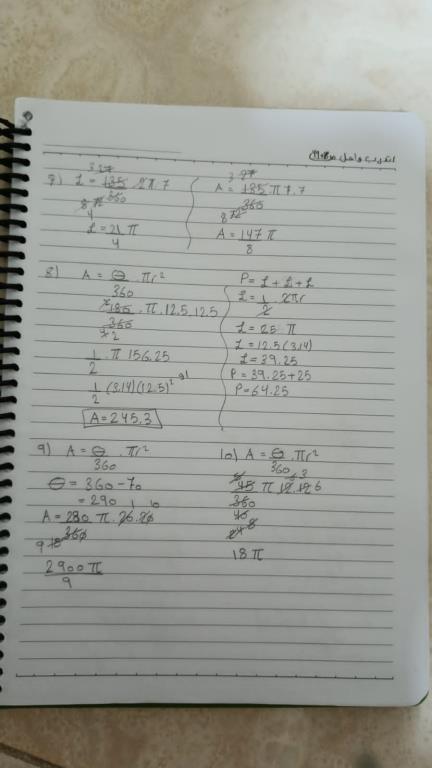 اتدرب وأحل ص
7) L = 135/360 . 2π . 7
L = 21 π / 4
A = 135/360 π 7 . 7
A = 147 π / 8
8) A = θ/360 . πr²
180/360 . π . 12.5 . 12.5
1/2 . π 156.25
1/2 (3.14)(12.5)²
A = 245.3
P = L + L + L
L = 1/2 . 2πr
L = 25 π
L = 12.5 (3.14)
L = 39.25
P = 39.25 + 25
P = 64.25
9) A = θ/360 . πr²
θ = 360 - 70
= 290
A = 290/360 π
2900 π / 9
10) A = θ/360 πr²
45/360 π 12 . 12
18 π